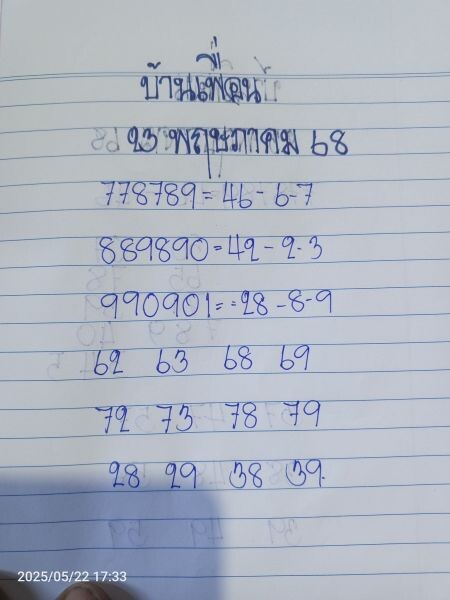 บ้านเพื่อน
23 พฤษภาคม 68
778789 = 46 - 6-7
889890 = 42 - 2-3
990901 = -28 - 8-9
62 63 68 69
72 73 78 79
28 29 38 39
2025/05/22 17:33